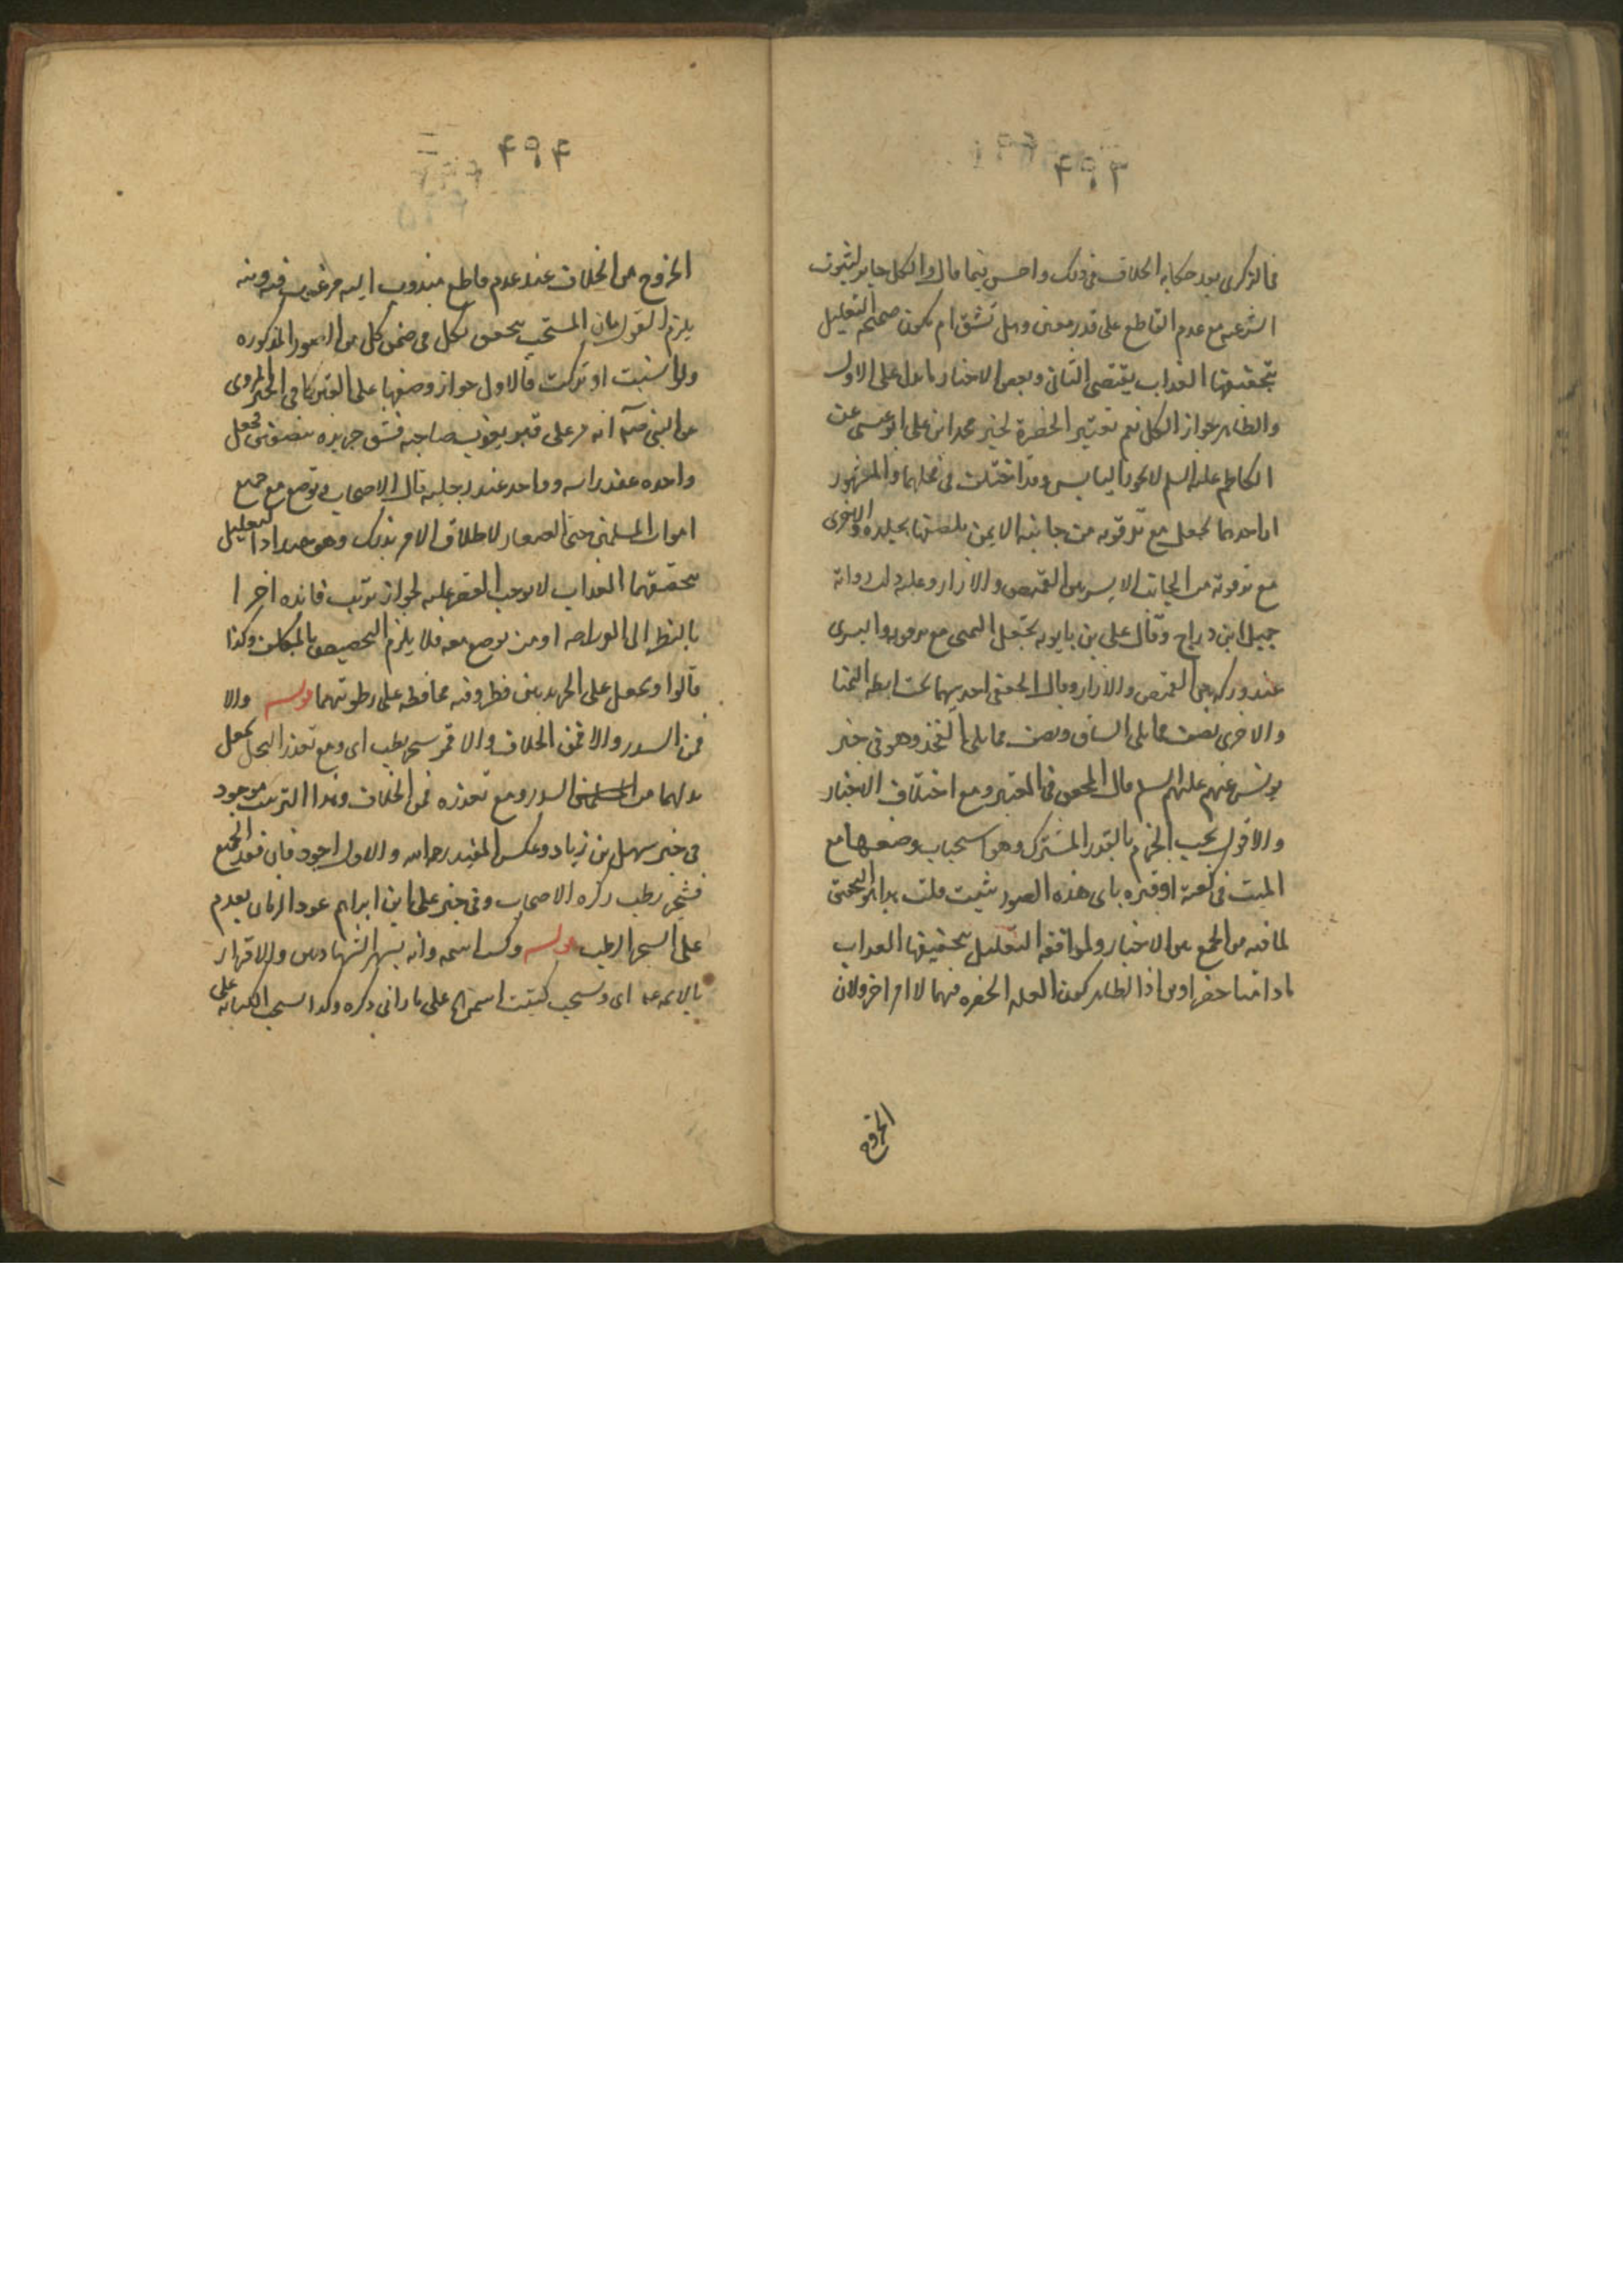 ۴۹۳
في الذكرى بعد حكاية الخلاف في ذلك واحسن فيما قال والكل جايز لثبوت
الشرعية مع عدم القاطع على قدر معين وهل تشق ام تكون صحيحة التعليل
بتخفيفها العذاب يقتضي الثاني وبعض الاخبار يدل على الاول
والظاهر جواز الكل نعم تعتبر الخضرة لخبر محمد ابن علي ابو عيسى عن
الكاظم عليه السلم لا يجوز اليابس وقد اختلف في محلهما والمشهور
ان احدهما تجعل مع ترقوته من جانبه الايمن يلصقها بجلده والاخرى
مع ترقوته من الجانب الايسر بين القميص والازار وعليه دلت رواية
جميل ابن دراج وقال علي بن بابويه تجعل اليمنى مع ترقوته واليسرى
عند وركه بين القميص والازار وقال الجعفي احديهما تحت ابطه اليمنا
والاخرى نصف مما يلي الساق ونصف مما يلي الفخذ وهو في خبر
يونس عنهم عليهم السلم قال المحقق في المعتبر ومع اختلاف الاخبار
والاقوال يجب الجزم بالقدر المشترك وهو استحباب وضعها مع
الميت في كفنه او قبره باي هذه الصور شيت قلت هذا هو التحقيق
لما فيه من الجمع بين الاخبار ولموافقة التعليل بتخفيفها العذاب
ما دامتا خضراوين اذ الظاهر كون العلة الخضره فيهما لا امر اخر ولان
الخروج
۴۹۴
الخروج من الخلاف عند عدم قاطع مندوب اليه مرغب فيه ومنه
يلزم القول بان المستحب يتحقق لكل في ضمن كل من الصور المذكوره
ولو نسيت او تركت فالاول جواز وضعها على القبر كما في الخبر المروي
عن النبي صلم انه مر على قبر يعذب صاحبه فشق جريده بنصفين فجعل
واحده عند راسه وواحد عند رجليه قال الاصحاب توضع مع جميع
اموات المسلمين حتى الصغار لاطلاق الامر بذلك وهو جيد اذ التعليل
بتخفيفهما العذاب لا يوجب القصر عليه لجواز ترتب فائده اخرا
بالنظر الى الواضع او من توضع معه فلا يلزم التخصيص بالمكلف وكذا
قالوا ويجعل على الجريدتين قطن وفيه محافظه على رطوبتهما قوله والا
فمن السدر والا فمن الخلاف والا فمن شجر رطب اي ومع تعذر النخل تجعل
بدلهما من السدر ومع تعذره فمن الخلاف وهذا الترتيب موجود
في خبر سهل بن زياد وعكس المفيد رحمه الله والاول اجود فان فقد الجميع
فشجر رطب ذكره الاصحاب وفي خبر علي ابن ابراهيم عود الرمان يقدم
على الشجر الرطب قوله وكتب اسمه وانه يشهد الشهادتين والاقرار
بالايمه عه اي ويستحب كتبت اسمه على ما راتي ذكره وكذا يستحب الكتابه على